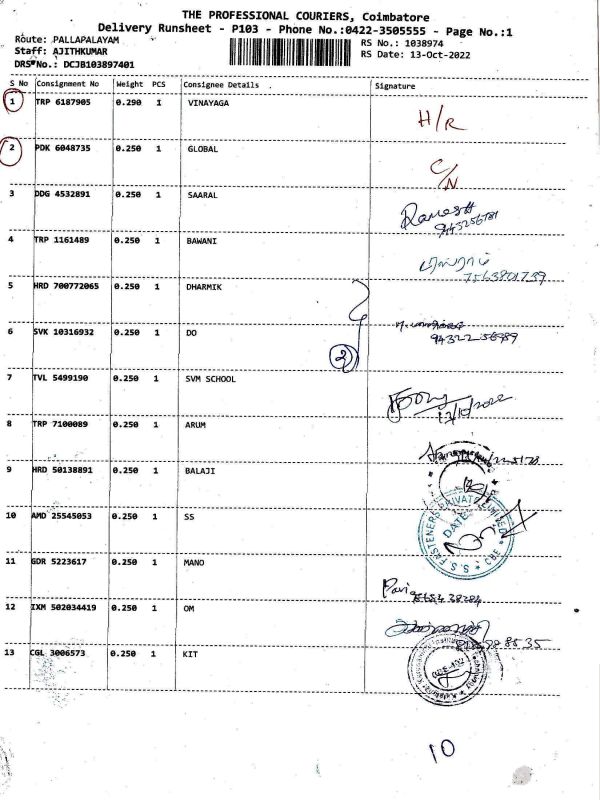 THE PROFESSIONAL COURIERS, Coimbatore
Delivery Runsheet - P103 - Phone No.:0422-3505555 - Page No.:1
Route: PALLAPALAYAM
Staff: AJITHKUMAR
DRS No.: DCJB103897401
RS No.: 1038974
RS Date: 13-Oct-2022
S No Consignment No Weight PCS Consignee Details Signature
1 TRP 6187905 0.290 1 VINAYAGA H/R
2 PDK 6048735 0.250 1 GLOBAL C/N
3 DDG 4532891 0.250 1 SAARAL Ramesh
4 TRP 1161489 0.250 1 BAWANI
7563801739
5 HRD 700772065 0.250 1 DHARMIK
6 SVK 10316932 0.250 1 DO 2
94322 56989
7 TVL 5499190 0.250 1 SVM SCHOOL
8 TRP 7100089 0.250 1 ARUM
9 HRD 50138891 0.250 1 BALAJI
10 AMD 25545053 0.250 1 SS
S.S. FASTENERS PRIVATE LIMITED
DATE
CBE
11 GDR 5223617 0.250 1 MANO
12 IXM 502034419 0.250 1 OM
13 CGL 3006573 0.250 1 KIT
10